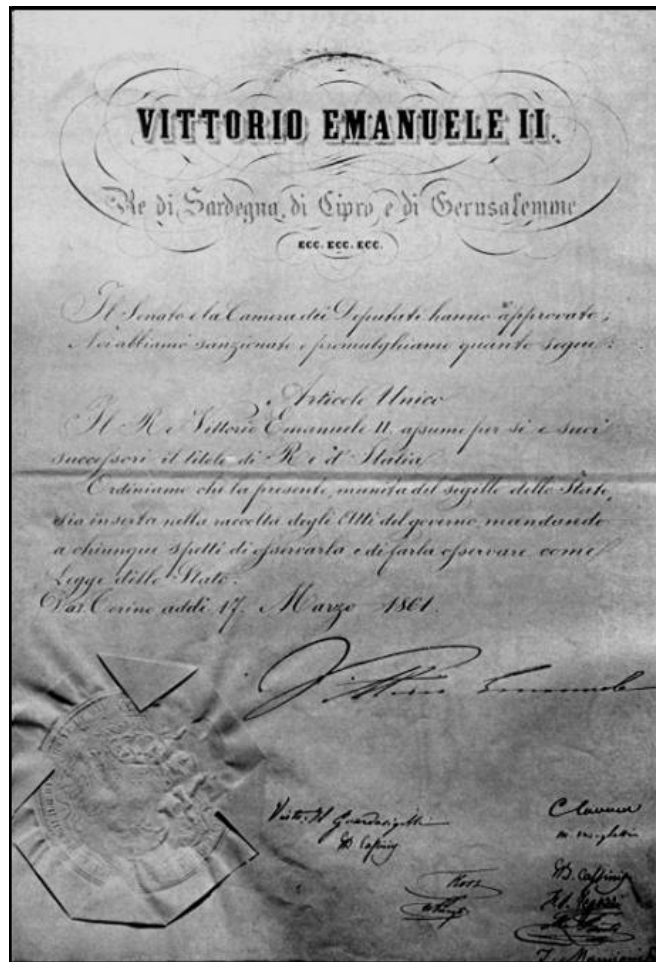 VITTORIO EMANUELE II.
Re di Sardegna, di Cipro e di Gerusalemme
ECC. ECC. ECC.
Il Senato e la Camera dei Deputati hanno approvato;
Noi abbiamo sanzionato e promulghiamo quanto segue:
Articolo Unico
Il Re Vittorio Emanuele II assume per sè e suoi
successori il titolo di Re d'Italia.
Ordiniamo che la presente, munita del sigillo dello Stato,
sia inserta nella raccolta degli Atti del governo, mandando
a chiunque spetti di osservarla e di farla osservare come
Legge dello Stato.
Torino addì 17 Marzo 1861.
Vittorio Emanuele
Visto: Il Guardasigilli
GB. Cassinis
C Cavour
M. Minghetti
GB. Cassinis